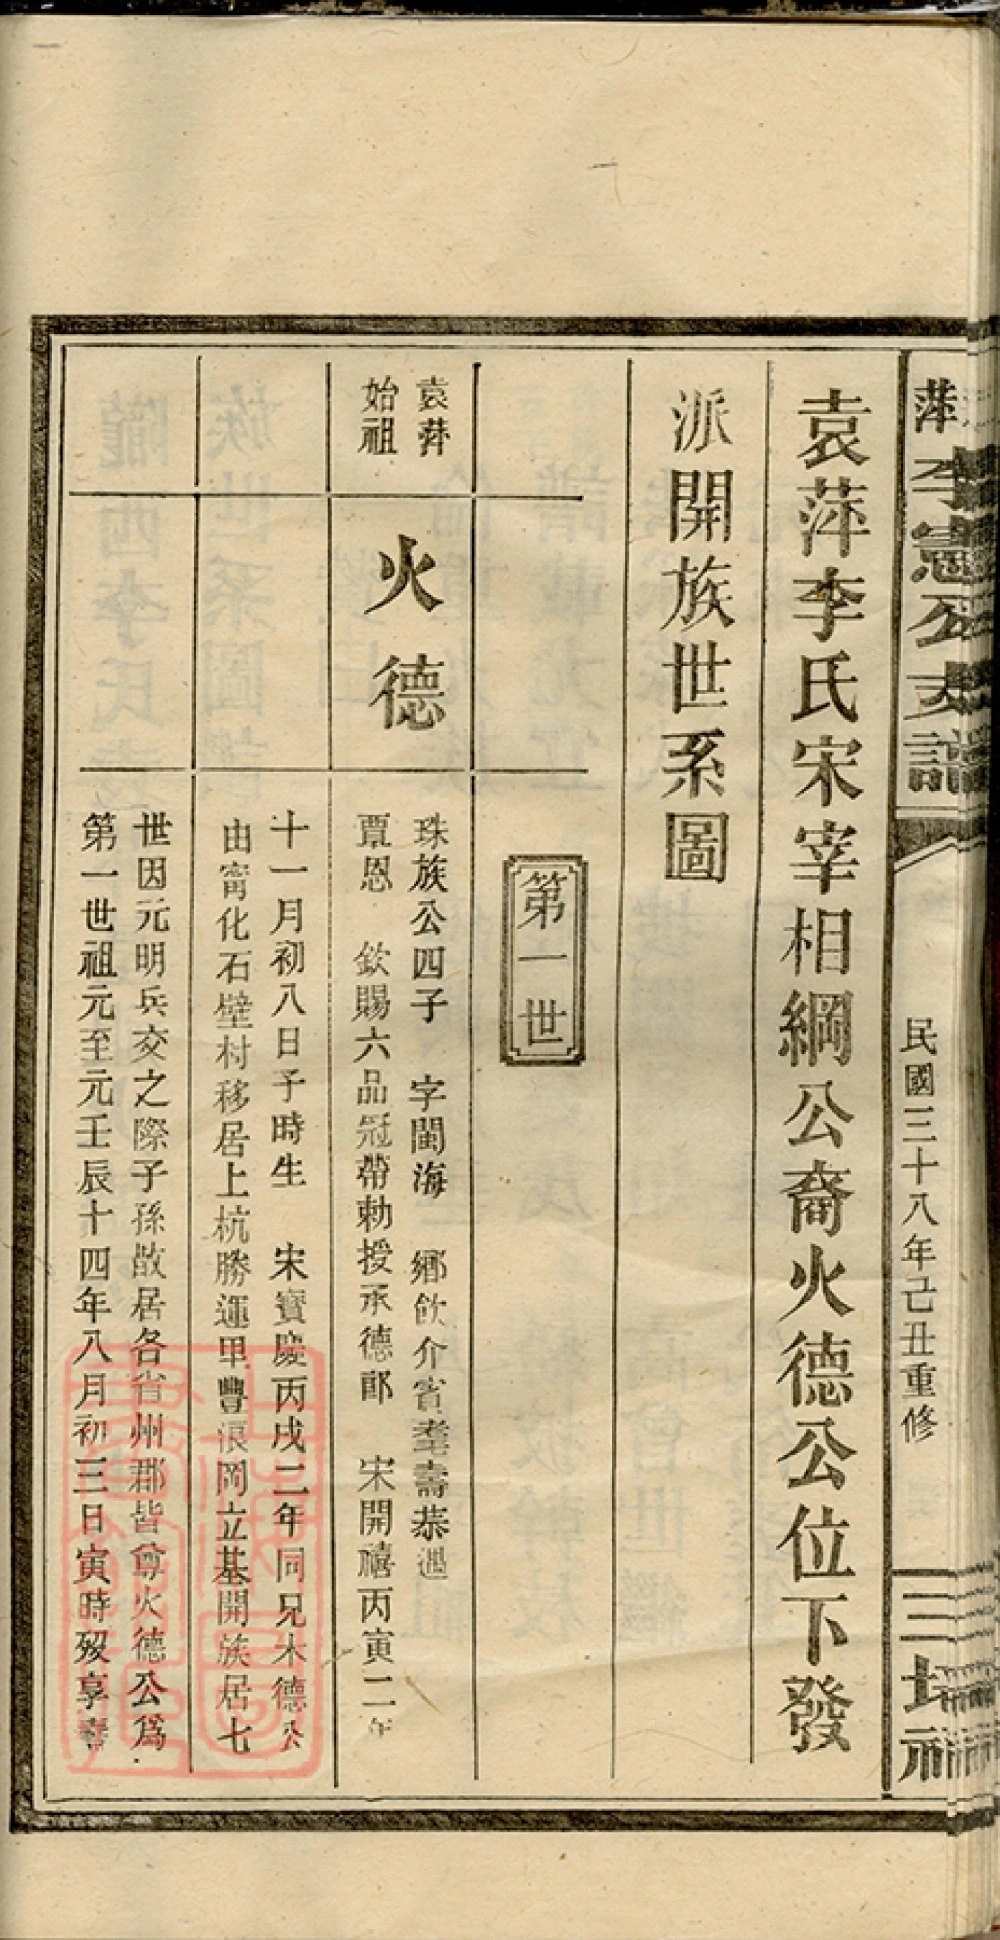 萍李憲公支譜
民國三十八年己丑重修
袁萍李氏宋宰相綱公裔火德公位下發
派開族世系圖
第一世
袁萍
始祖
火德
珠族公四子 字閩海 鄉飲介賓耄壽恭遇
覃恩 欽賜六品冠帶勅授承德郎 宋開禧丙寅二年
十一月初八日子時生 宋寶慶丙戌二年同兄木德公
由甯化石壁村移居上杭勝運里豐浪岡立基開族居七
世因元明兵交之際子孫散居各省州郡皆尊火德公爲
第一世祖元至元壬辰十四年八月初三日寅時歿享壽